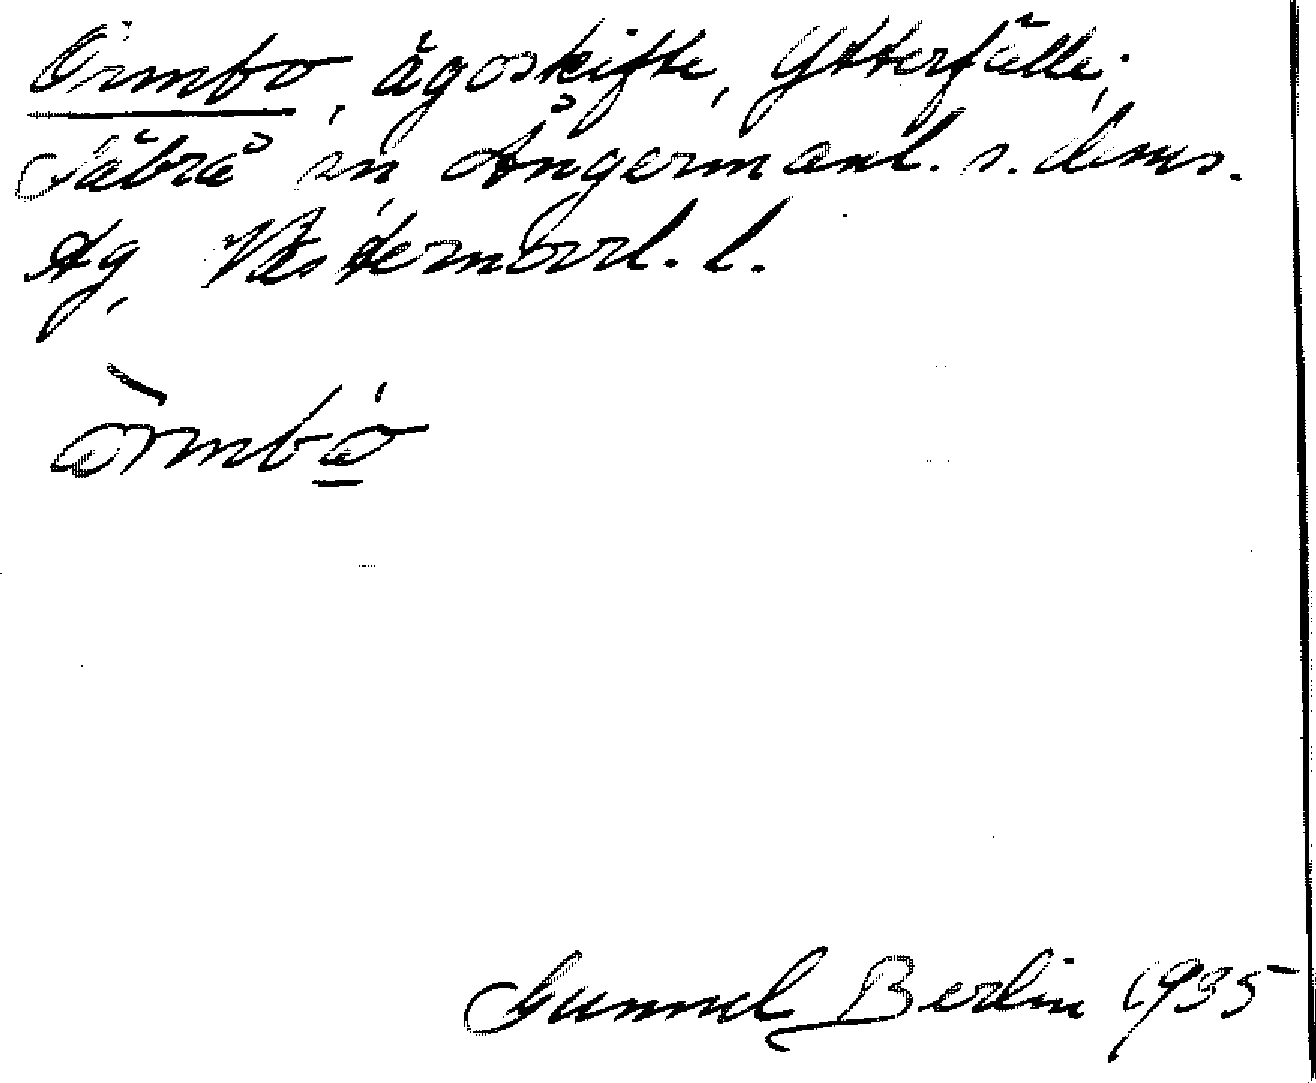 Örmbo, ägoskifte, Ytterfälle,
Säbrå sn, Ångermanl. s. doms.
tg, Västernorrl. l.
òrmbó
Gunnel Berlin 1935